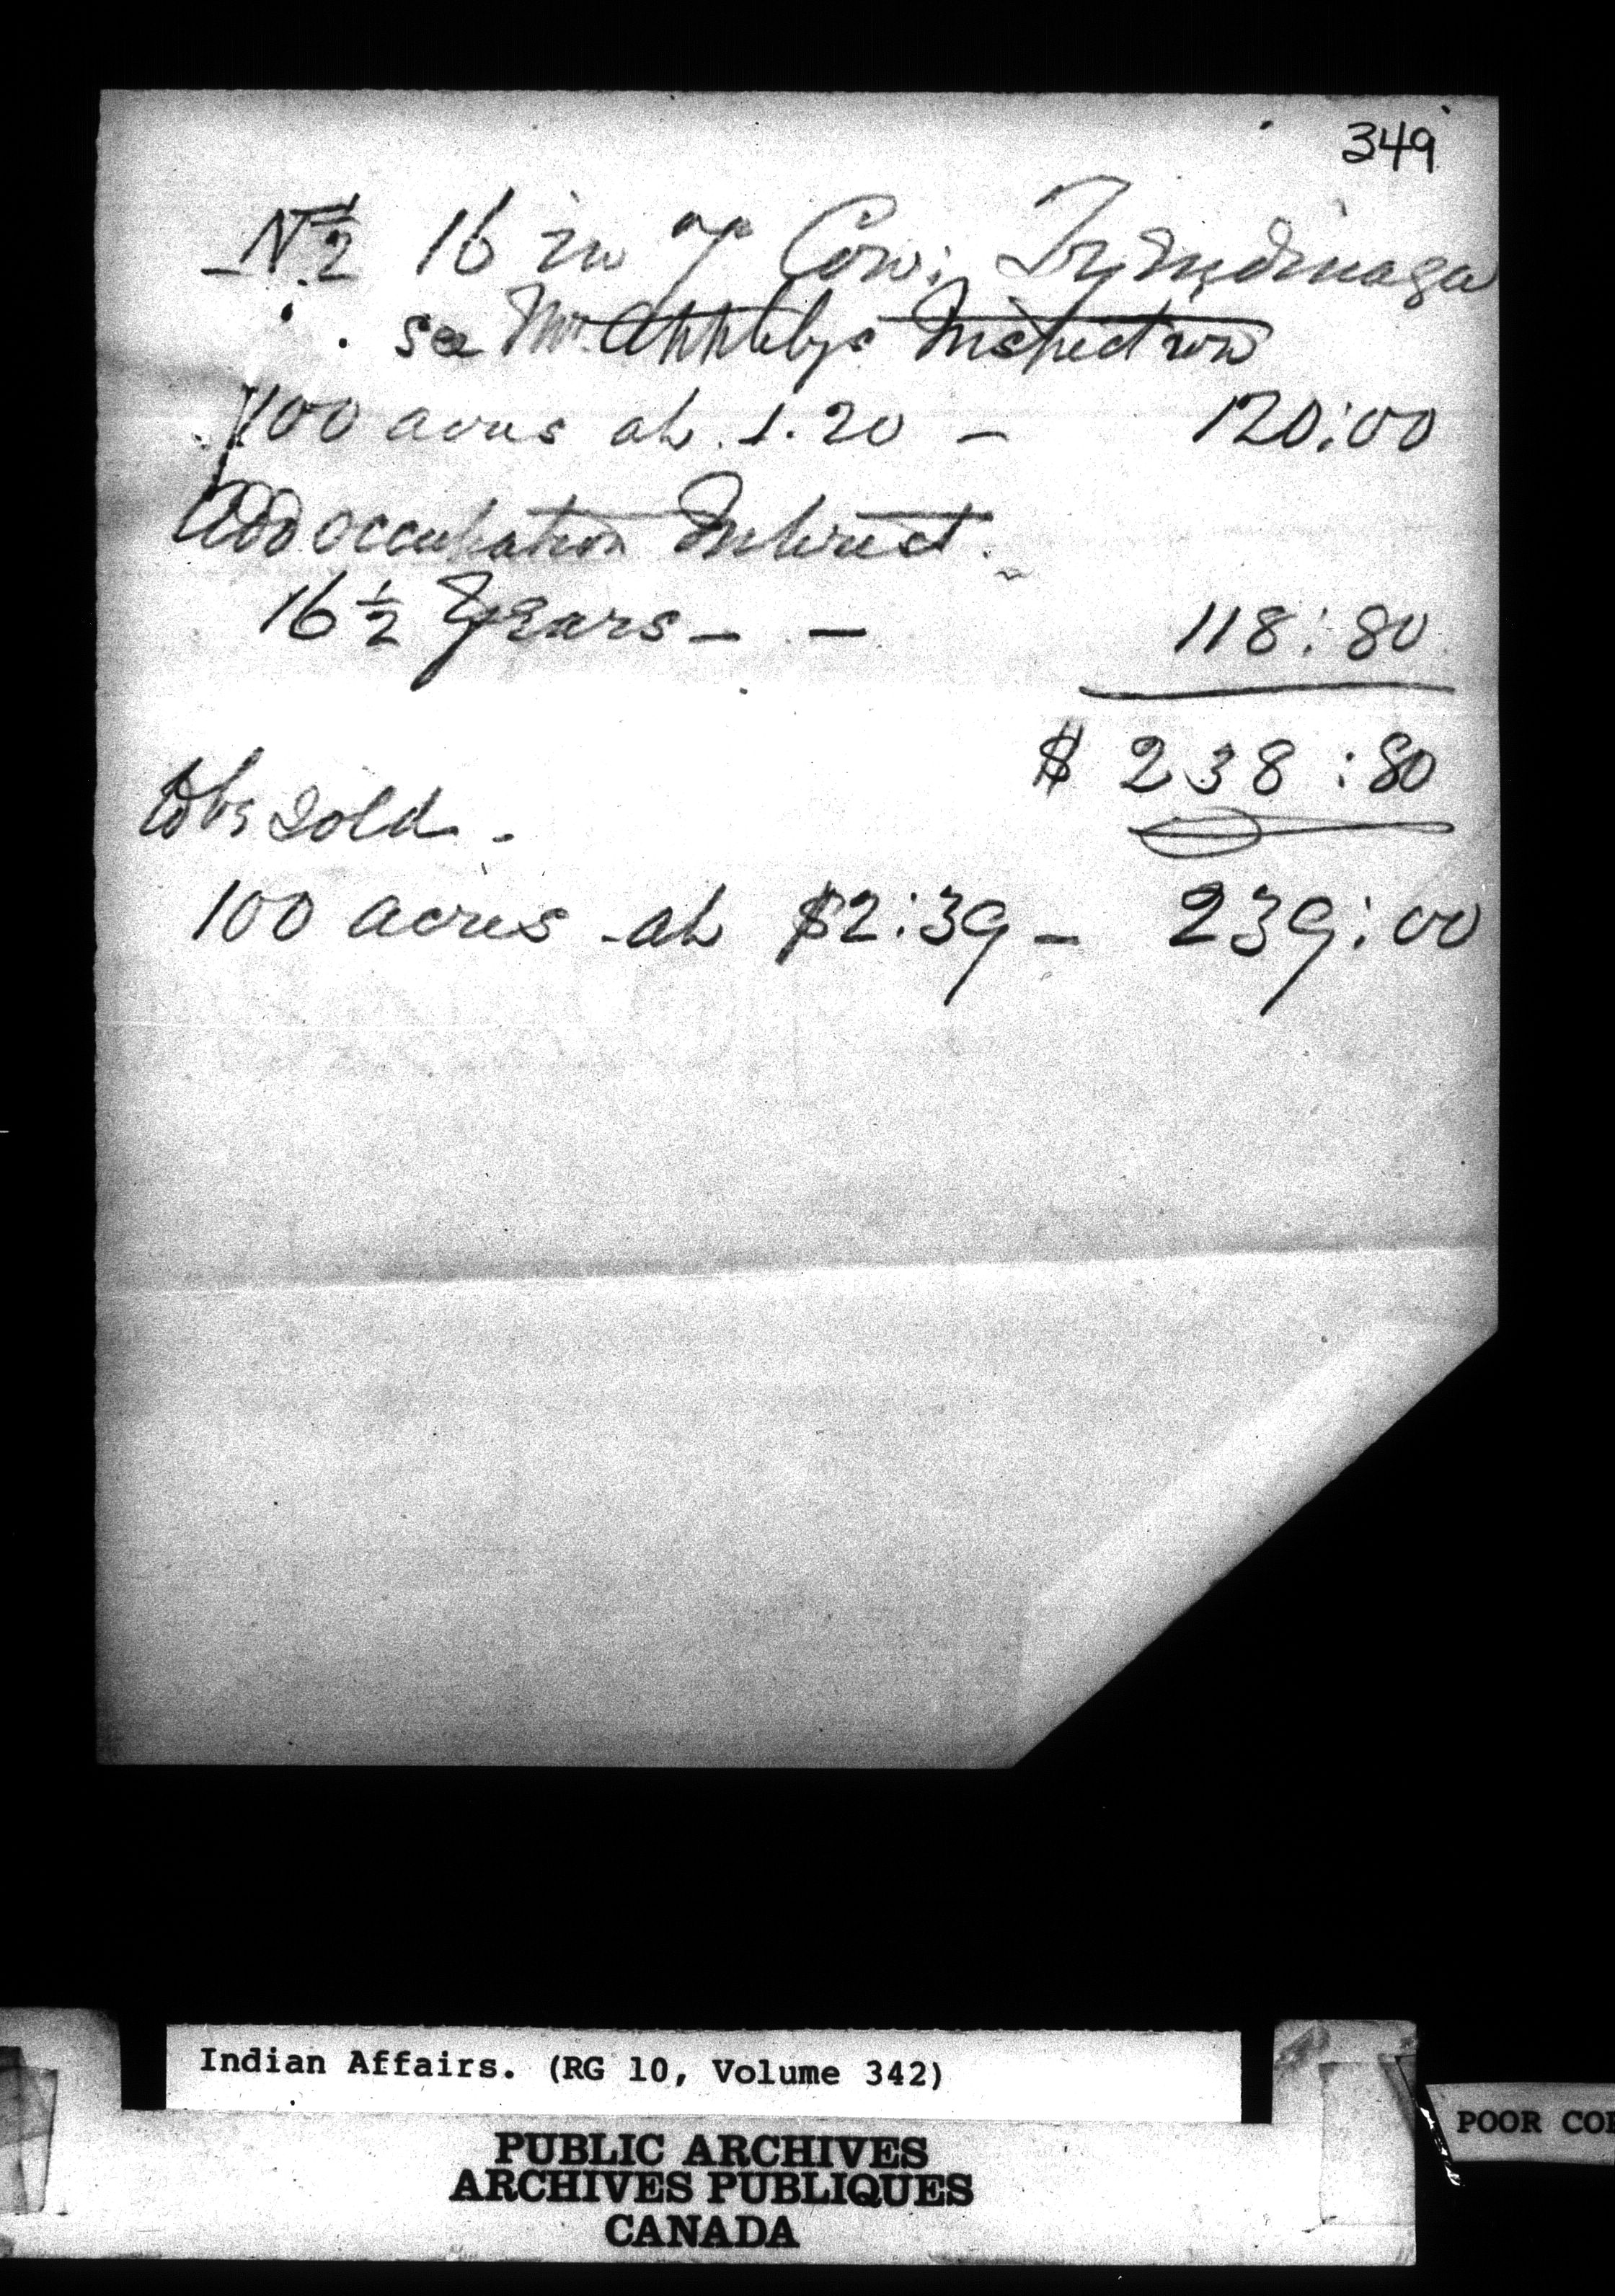 349
N ½ 16 in 7 Con: Tyendinaga
see Mr. Applebys Inspection
100 acres at 1.20 – 120:00
Add occupation Interest.
16 ½ Years – – 118:80
$ 238:80
to be Sold –
100 acres at $2:39 – 239:00
Indian Affairs. (RG 10, Volume 342)
PUBLIC ARCHIVES
ARCHIVES PUBLIQUES
CANADA
POOR COP